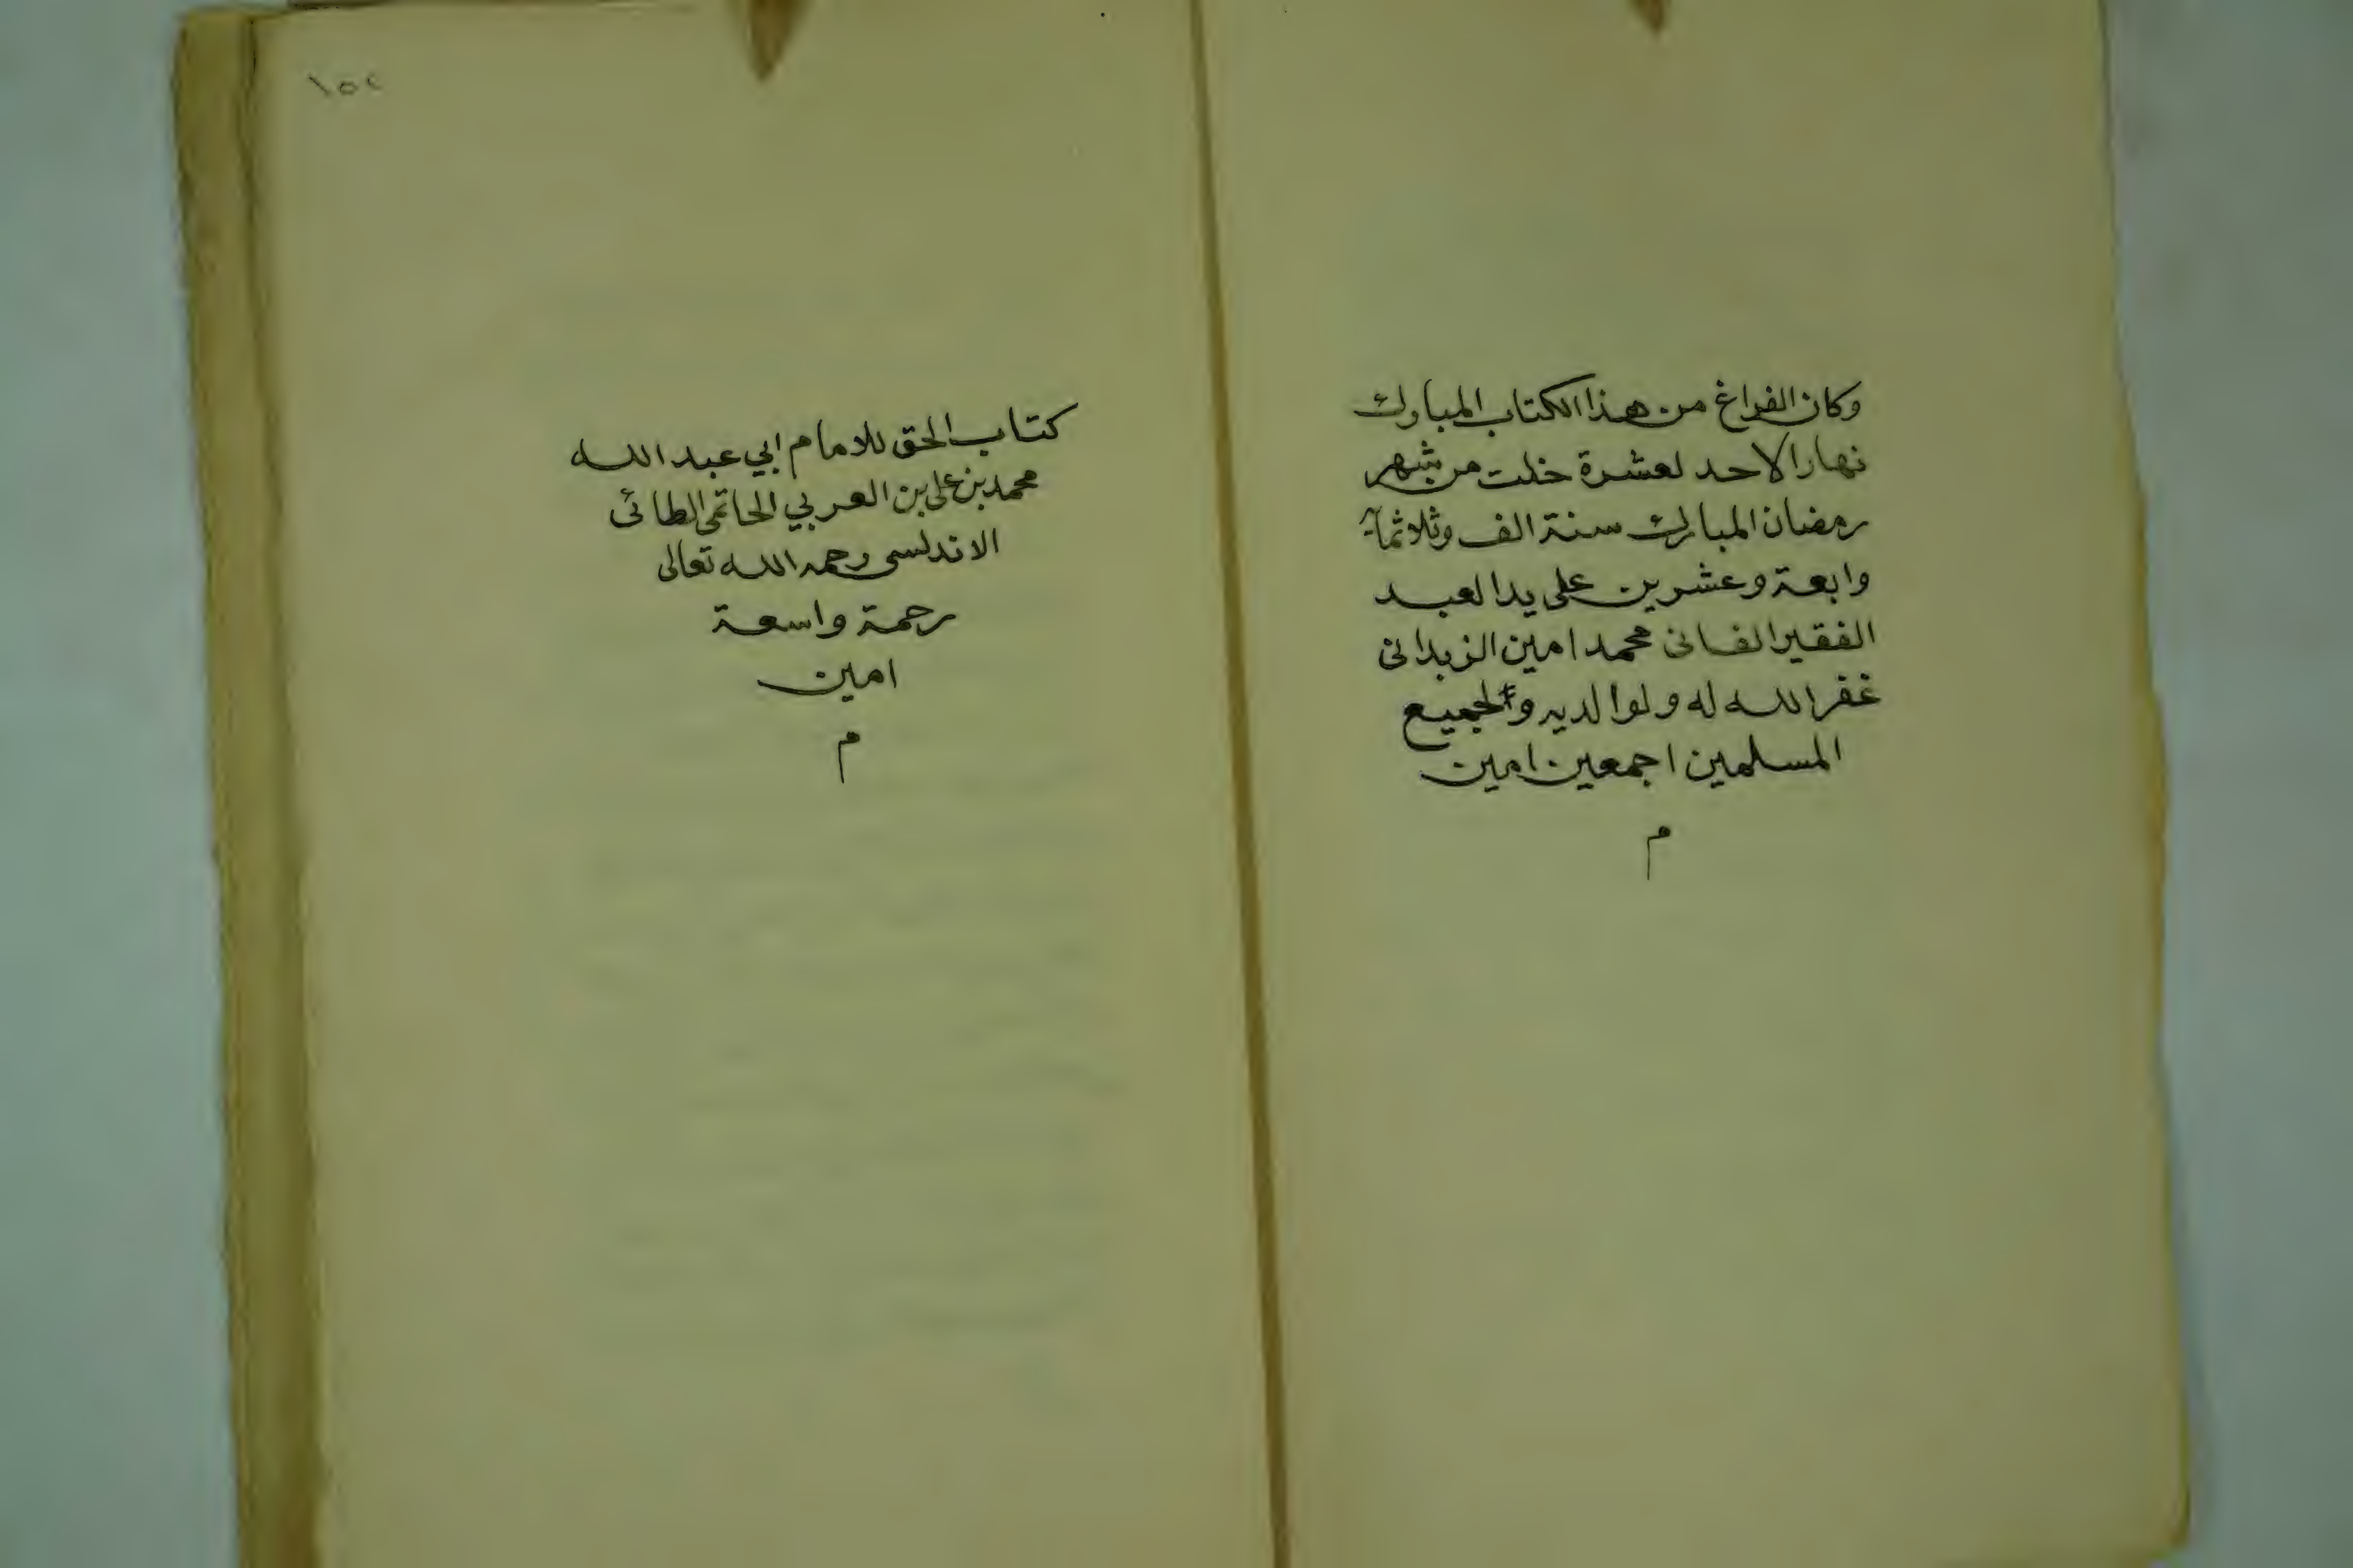 وكان الفراغ من هذا الكتاب المبارك
نهار الاحد لعشرة خلت من شهر
رمضان المبارك سنة الف وثلاثمآية
وابعة وعشرين على يد العبد
الفقير الفانى محمد امين الزبدانى
غفر الله له ولوالديه ولجميع
المسلمين اجمعين امين
م
١٥٢
كتاب الحق للامام ابي عبد الله
محمد بن على بن العربي الحاتمى الطائى
الاندلسى رحمه الله تعالى
رحمة واسعة
امين
م